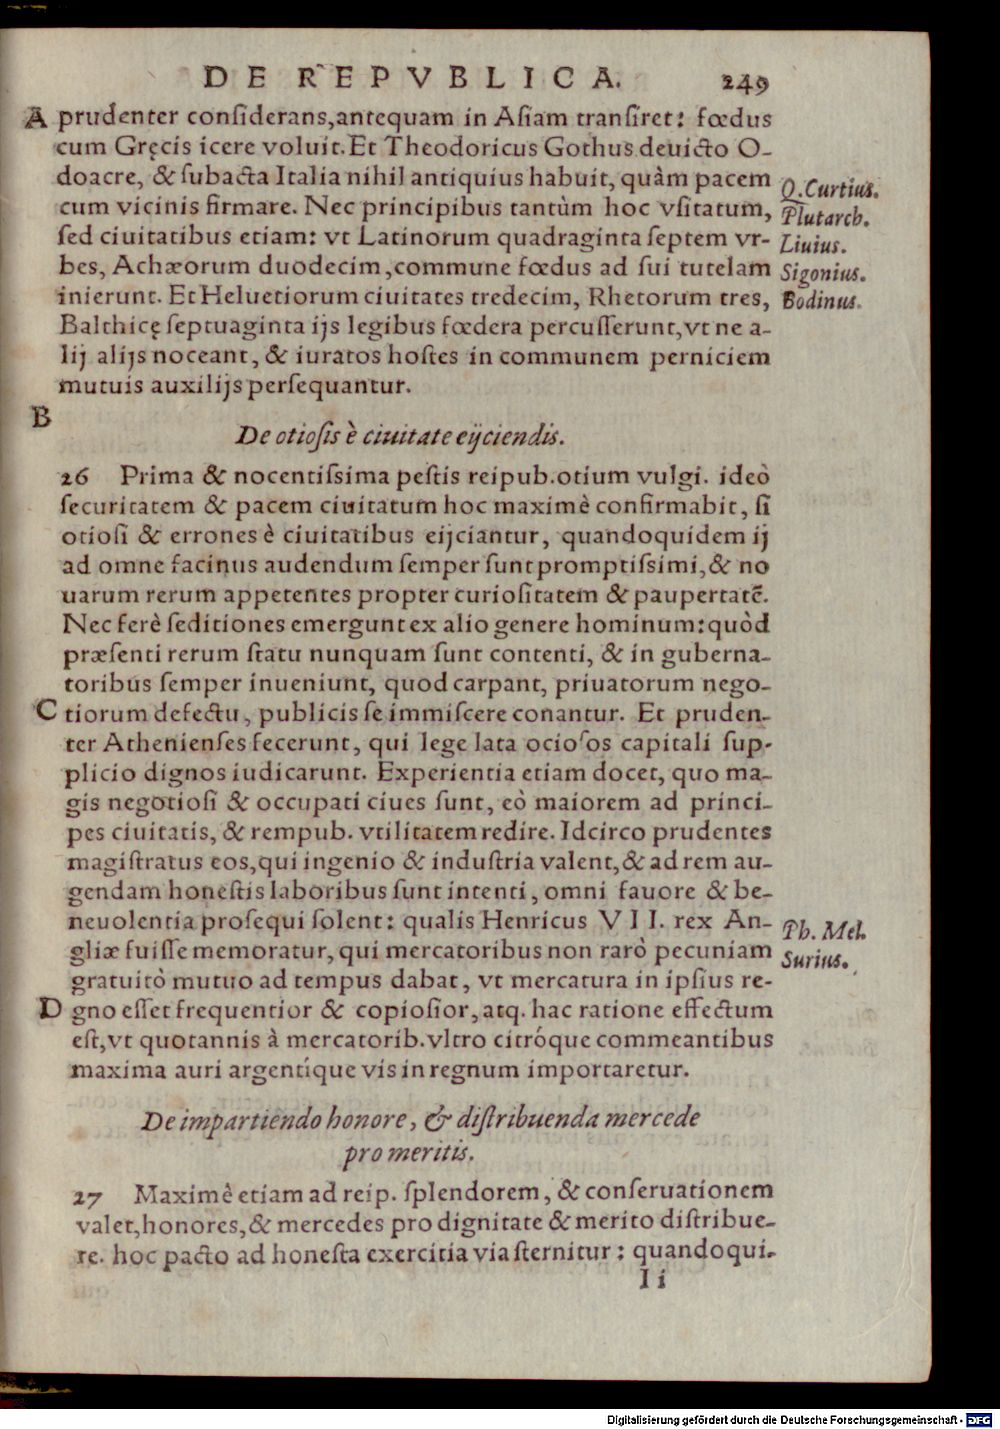 DE REPVBLICA. 249
A prudenter conſiderans, antequam in Aſiam tranſiret: fœdus
cum Gręcis icere voluit. Et Theodoricus Gothus deuicto O-
doacre, & ſubacta Italia nihil antiquius habuit, quàm pacem
Q. Curtius.
cum vicinis firmare. Nec principibus tantùm hoc vſitatum,
Plutarch.
ſed ciuitatibus etiam: vt Latinorum quadraginta ſeptem vr-
Liuius.
bes, Achæorum duodecim, commune fœdus ad ſui tutelam
Sigonius.
inierunt. Et Heluetiorum ciuitates tredecim, Rhetorum tres,
Bodinus.
Balthicę ſeptuaginta ijs legibus fœdera percuſſerunt, vt ne a-
lij alijs noceant, & iuratos hoſtes in communem perniciem
mutuis auxilijs perſequantur.
B
De otioſis è ciuitate eijciendis.
26 Prima & nocentiſsima peſtis reipub. otium vulgi. ideò
ſecuritatem & pacem ciuitatum hoc maximè confirmabit, ſi
otioſi & errones è ciuitatibus eijciantur, quandoquidem ij
ad omne facinus audendum ſemper ſunt promptiſsimi, & no
uarum rerum appetentes propter curioſitatem & paupertatē.
Nec ferè ſeditiones emergunt ex alio genere hominum: quòd
præſenti rerum ſtatu nunquam ſunt contenti, & in guberna-
toribus ſemper inueniunt, quod carpant, priuatorum nego-
C tiorum defectu, publicis ſe immiſcere conantur. Et pruden-
ter Athenienſes fecerunt, qui lege lata ocioſos capitali ſup-
plicio dignos iudicarunt. Experientia etiam docet, quo ma-
gis negotioſi & occupati ciues ſunt, eò maiorem ad princi-
pes ciuitatis, & rempub. vtilitatem redire. Idcirco prudentes
magiſtratus eos, qui ingenio & induſtria valent, & ad rem au-
gendam honeſtis laboribus ſunt intenti, omni fauore & be-
neuolentia proſequi ſolent: qualis Henricus VII. rex An-
Ph. Mel.
gliæ fuiſſe memoratur, qui mercatoribus non rarò pecuniam
Surius.
gratuitò mutuo ad tempus dabat, vt mercatura in ipſius re-
D gno eſſet frequentior & copioſior, atq. hac ratione effectum
eſt, vt quotannis à mercatorib. vltro citróque commeantibus
maxima auri argentíque vis in regnum importaretur.
De impartiendo honore, & diſtribuenda mercede
pro meritis.
27 Maximè etiam ad reip. ſplendorem, & conſeruationem
valet, honores, & mercedes pro dignitate & merito diſtribue-
re. hoc pacto ad honeſta exercitia via ſternitur: quandoqui-
Ii
Digitalisierung gefördert durch die Deutsche Forschungsgemeinschaft - DFG